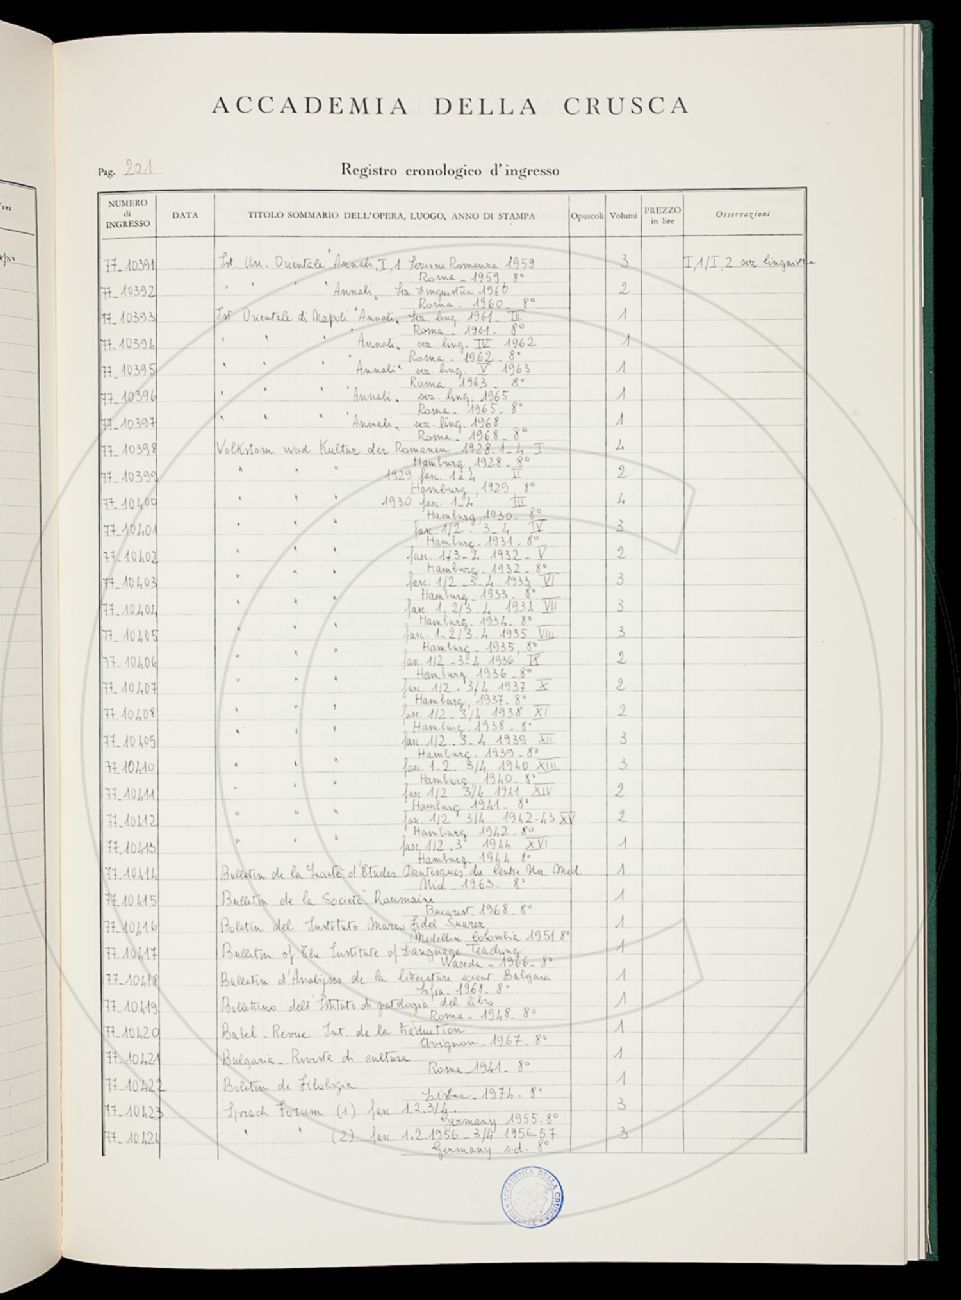 ACCADEMIA DELLA CRUSCA
Pag. 201
Registro cronologico d'ingresso
NUMERO di INGRESSO DATA TITOLO SOMMARIO DELL'OPERA, LUOGO, ANNO DI STAMPA Opuscoli Volumi PREZZO in lire Osservazioni
77-10391 Ist. Un. Orientale "Annali, I, 1 Sezione Romanza 1959 3 I,1/I,2 sez linguistica
Roma - 1959 8°
77-10392 " " " "Annali. Sez Linguistica 1960 2
Roma. 1960. 8°
77-10393 Ist. Orientale di Napoli "Annali. Sez. ling. 1961 III 1
Roma - 1961. 8°
77-10394 " " " "Annali. sez. ling. IV 1962 1
Roma. 1962. 8°
77-10395 " " " "Annali" sez. ling. V 1963 1
Roma 1963. 8°
77-10396 " " " "Annali. sez. ling. 1965 1
Roma. 1965. 8°
77-10397 " " " "Annali. sez. ling. 1968 1
Roma. 1968. 8°
77-10398 Volkstom und Kultur der Romanen 1928. 1-4 I 4
Hamburg, 1928. 8°
77-10399 " " " 1929 fasc. 1 a 4 II 2
Hamburg, 1929 8°
77-10400 " " " 1930 fasc. 1-4 III 4
Hamburg, 1930. 8°
77-10401 " " " fasc. 1/2 - 3-4 IV 3
Hamburg. 1931. 8°
77-10402 " " " fasc. 1/3-4 1932 - V 2
Hamburg. 1932. 8°
77-10403 " " " fasc. 1/2 - 3-4 1933 VI 3
Hamburg. 1933. 8°
77-10404 " " " fasc. 1. 2/3. 4 1934 VII 3
Hamburg. 1934. 8°
77-10405 " " " fasc. 1-2/3-4 1935 VIII 3
Hamburg. 1935. 8°
77-10406 " " " fasc. 1/2 - 3-4 1936 IX 2
Hamburg. 1936. 8°
77-10407 " " " fasc. 1/2. 3/4 1937 X 2
Hamburg, 1937. 8°
77-10408 " " " fasc. 1/2 - 3/4 1938 XI 2
Hamburg. 1938. 8°
77-10409 " " " fasc. 1/2. 3-4 1939 XII 3
Hamburg. 1939. 8°
77-10410 " " " fasc. 1-2. 3/4 1940 XIII 3
Hamburg, 1940. 8°
77-10411 " " " fasc 1/2 3/4 1941 XIV 2
Hamburg 1941. 8°
77-10412 " " " fasc. 1/2 3/4 1942-43 XV 2
Hamburg 1942. 8°
77-10413 " " " fasc 1/2. 3 1944 XVI 1
Hamburg. 1944 8°
77-10414 Bulletin de la Société d'Etudes Dantesques du Centre Un. Med. 1
1963. 8°
77-10415 Bulletin de la Societè Roumaine 1
Bucarest 1968. 8°
77-10416 Boletin del Instituto Marco Fidel Suarez 1
Medellin Colombia 1951 8°
77-10417 Bulletin of the Institute of Language Teaching 1
Waseda - 1966. 8°
77-10418 Bulletin d'Analyses de la literature scient. Bulgara 1
Sofia. 1968. 8°
77-10419 Bollettino dell'Istituto di patologia del libro 1
Roma - 1948. 8°
77-10420 Babel - Revue Int. de la traduction 1
Avignon - 1967. 8°
77-10421 Bulgaria - Rivista di cultura 1
Roma 1941. 8°
77-10422 Boletin de Filologia 1
Lisboa - 1974. 8°
77-10423 Sprach Forum (1) fasc 1.2.3/4. 3
Germany 1955. 8°
77-10424 " " (2) fasc 1.2.1956 - 3/4 1956-57 3
Germany s.d. 8°
ACCADEMIA DELLA CRUSCA